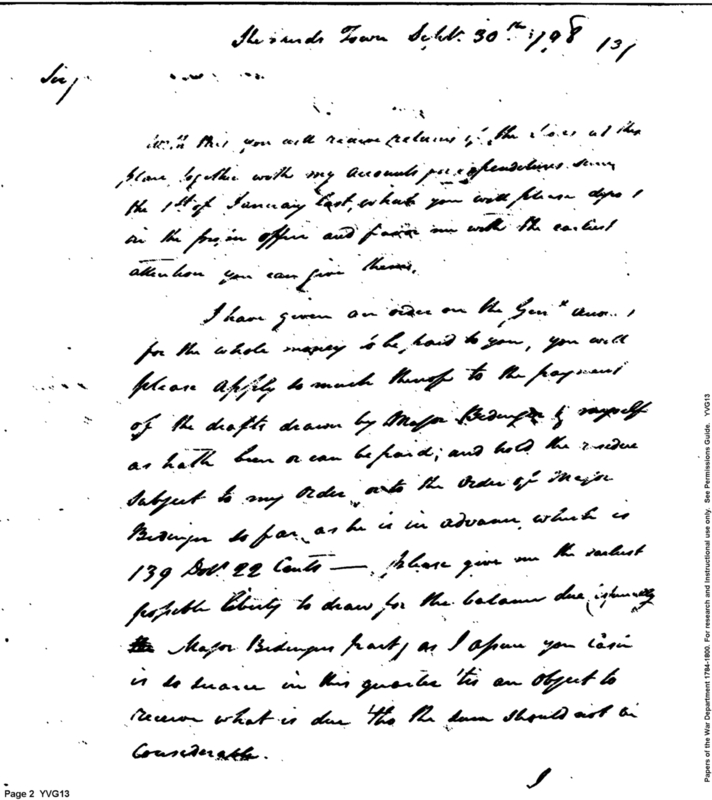 Town Sept. 30th 1798
Sir,
this you will receive returns of the at this
place together with my accounts for expenditures since
the 1st of January last, what you will please
in the office and favor me with the earliest
attention you can give them.
I have given an order on the
for the whole money to be paid to you, you will
please apply so much thereof to the payment
of the drafts drawn by Major Bedinger & myself
as hath been or can be paid; and hold the residue
subject to my order, or to the order of Major
Bedinger so far as he is in advance, which is
139 Dols 22 Cents — please give me the earliest
possible liberty to draw for the balance due (especially
Major Bedingers part) as I assure you Cash
is so scarce in this quarter 'tis an object to
receive what is due 'tho the sum should not be
Considerable.
I
Page 2 YVG13
Papers of the War Department 1784-1800. For research and instructional use only. See Permissions Guide. YVG13